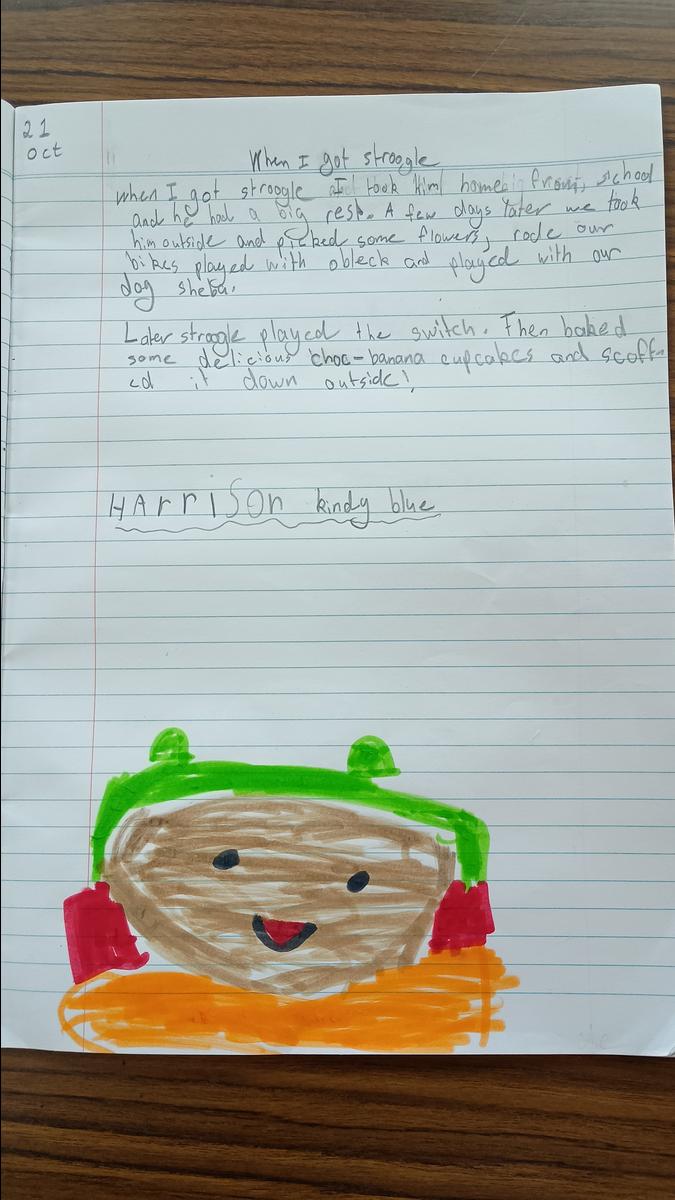 21
oct
When I got stroogle
when I got stroogle I took him home from school
and he had a big rest. A few days later we took
him outside and picked some flowers, rode our
bikes played with obleck and played with our
dog sheba.
Later stroogle played the switch. Then baked
some delicious choc-banana cupcakes and scoff-
ed it down outside!
HArriSon kindy blue